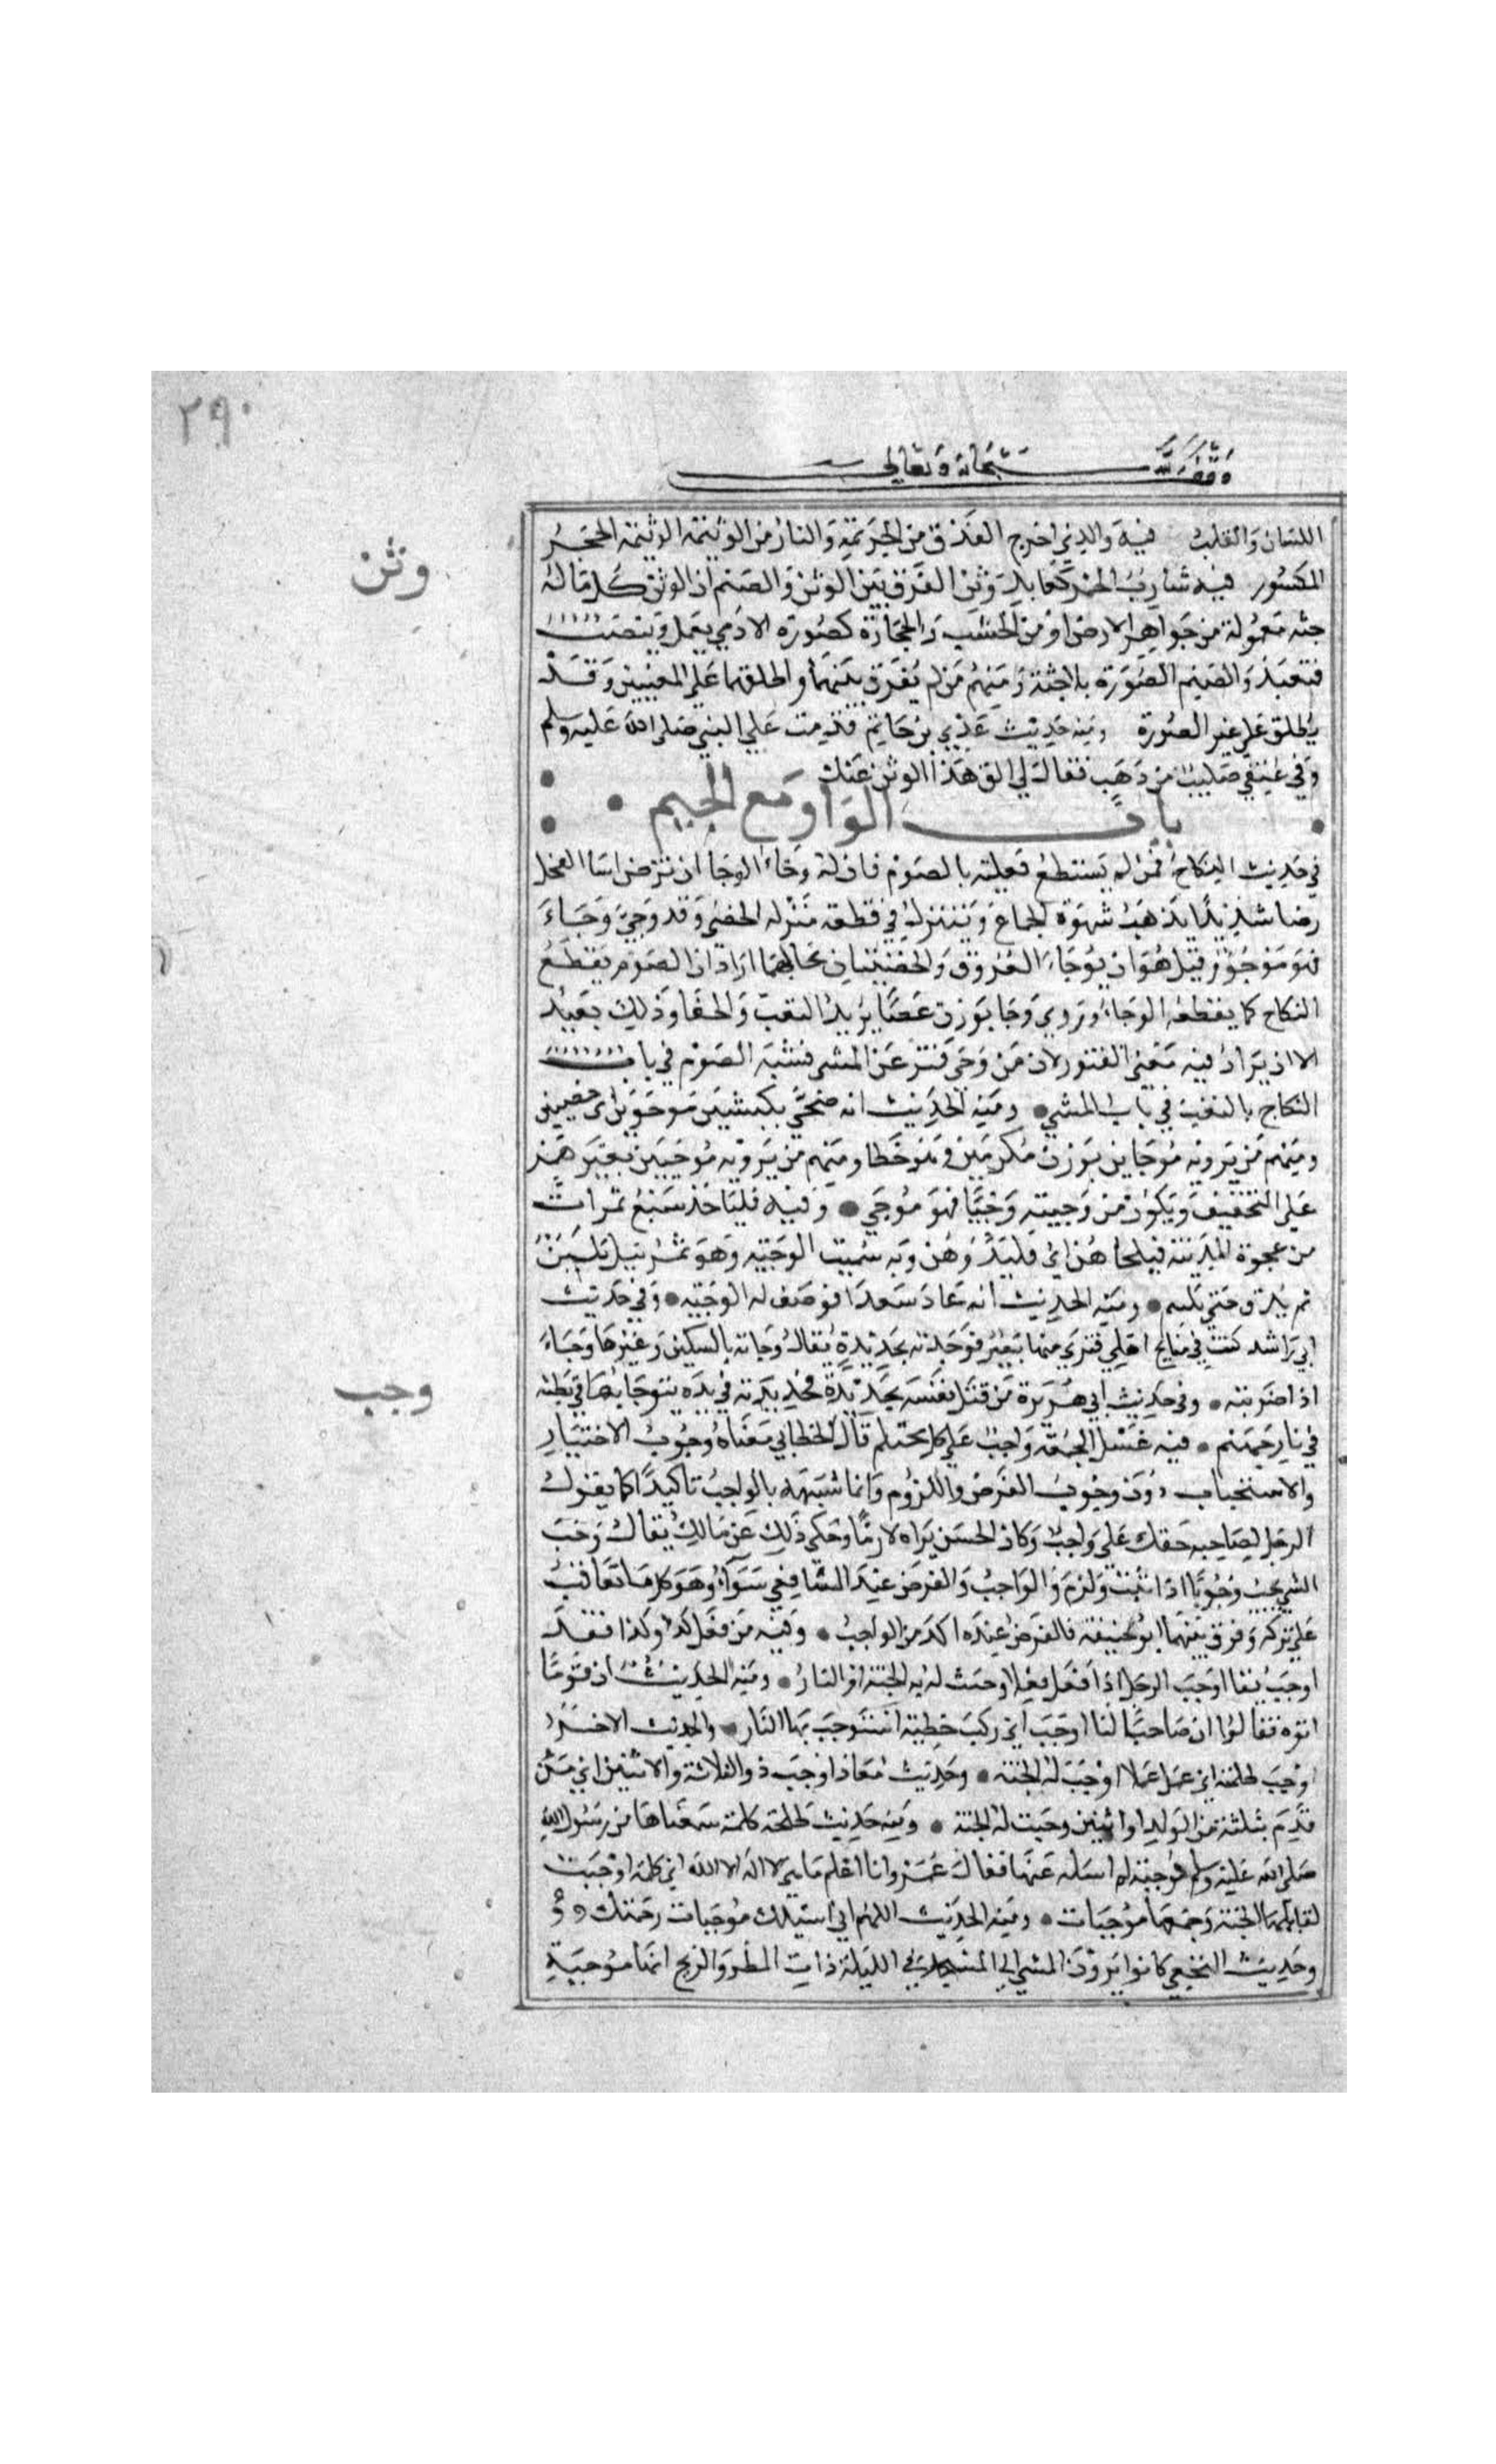 ٢٩٠
وقف لله سبحانه وتعالى
اللسان والقلب فيه والذي اخرج العذق من الجريمة والنار من الوثيمة الوثيمة الحجر
وثن
المكسور فيه شارب الخمر كعابد وثن الفرق بين الوثن والصنم ان الوثن كل ما له
جثه معمولة من جواهر الارض او من الخشب والحجارة كصورة الادمي يعمل وينصب
فتعبد والصنم الصورة بلا جثة ومنهم من لم يفرق بينهما واطلقهما على المعنيين وقد
يطلق على غير الصورة ومنه حديث عدي بن حاتم قدمت على النبي صلى الله عليه وسلم
وفي عنقي صليب من ذهب فقال لي الق هذا الوثن عنك
باب الواو مع الجيم
في حديث النكاح فمن لم يستطع فعليه بالصوم فان له وجاء الوجا ان ترض انثيا الفحل
رضا شديدا يذهب شهوة الجماع ويتنزل في قطعه منزله الخصي وقد وجي وجاء
فهو موجو وقيل هو ان يوجاء العروق والخصيتان بحالهما اراد ان الصوم يقطع
النكاح كما يقطعه الوجاء وتروي وجا بوزن عصا يريد التعب والحفا وذلك بعيد
الا ان يراد فيه معنى الفتور لان من وجي فتر عن المشي فشبه الصوم في باب
النكاح بالتعب في باب المشي ومنه الحديث انه ضحى بكبشين موجوين اي خصيين
ومنهم من يرويه موجاين بوزن مكرمين وهو خطا ومنهم من يرويه موجيين بغير همز
على التخفيف ويكون من وجيته وجيا فهو موجي وفيه فلياخذ سبع تمرات
من عجوة المدينة فليجاهن اي فليدقهن وبه سميت الوجيه وهو تمر يبل بلبن
ثم يدق حتى يلتيم ومنه الحديث انه عاد سعدا فوصف له الوجيه وفي حديث
ابي راشد كنت في منايح اهلي فنزي منها بعير فوجاته بحديدة يقال وجاته بالسكين وغيرها وجاء
وجب
اذا ضربته وفي حديث ابي هريرة من قتل نفسه بحديدة فحديدته في يده يتوجا بها في بطنه
في نار جهنم فيه غسل الجمعة واجب على كل محتلم قال الخطابي معناه وجوب الاختيار
والاستحباب دون وجوب الفرض واللزوم وانما شبهه بالواجب تاكيدا كما يقول
الرجل لصاحبه حقك علي واجب وكان الحسن يراه لازما وحكي ذلك عن مالك يقال وجب
الشي يجب وجوبا اذا ثبت ولزم والواجب والفرض عند الشافعي سواء وهو كل ما تعاقب
على تركه وفرق بينهما ابو حنيفة فالفرض عنده اكد من الواجب وفيه من فعل كذا وكذا فقد
اوجب يقال اوجب الرجل اذا فعل فعلا وجبت له به الجنة او النار ومنه الحديث ان قوما
اتوه فقالوا ان صاحبا لنا اوجب اي ركب خطية استوجب بها النار والحديث الاخر
اوجب طلحة اي عمل عملا اوجب له الجنة وحديث معاذ اوجب ذو الثلاثة والاثنين اي من
قدم ثلثة من الولد او اثنين وجبت له الجنة ومنه حديث طلحة كلمة سمعناها من رسول الله
صلى الله عليه وسلم موجبة لم اسله عنها فقال عمر وانا اعلم ما هي لا اله الا الله اي كلمة اوجبت
لقايلها الجنة وجمعها موجبات ومنه الحديث اللهم اني اسيلك موجبات رحمتك
وحديث النخعي كانوا يرون المشي الى المسجد في الليلة ذات المطر والريح انها موجبة